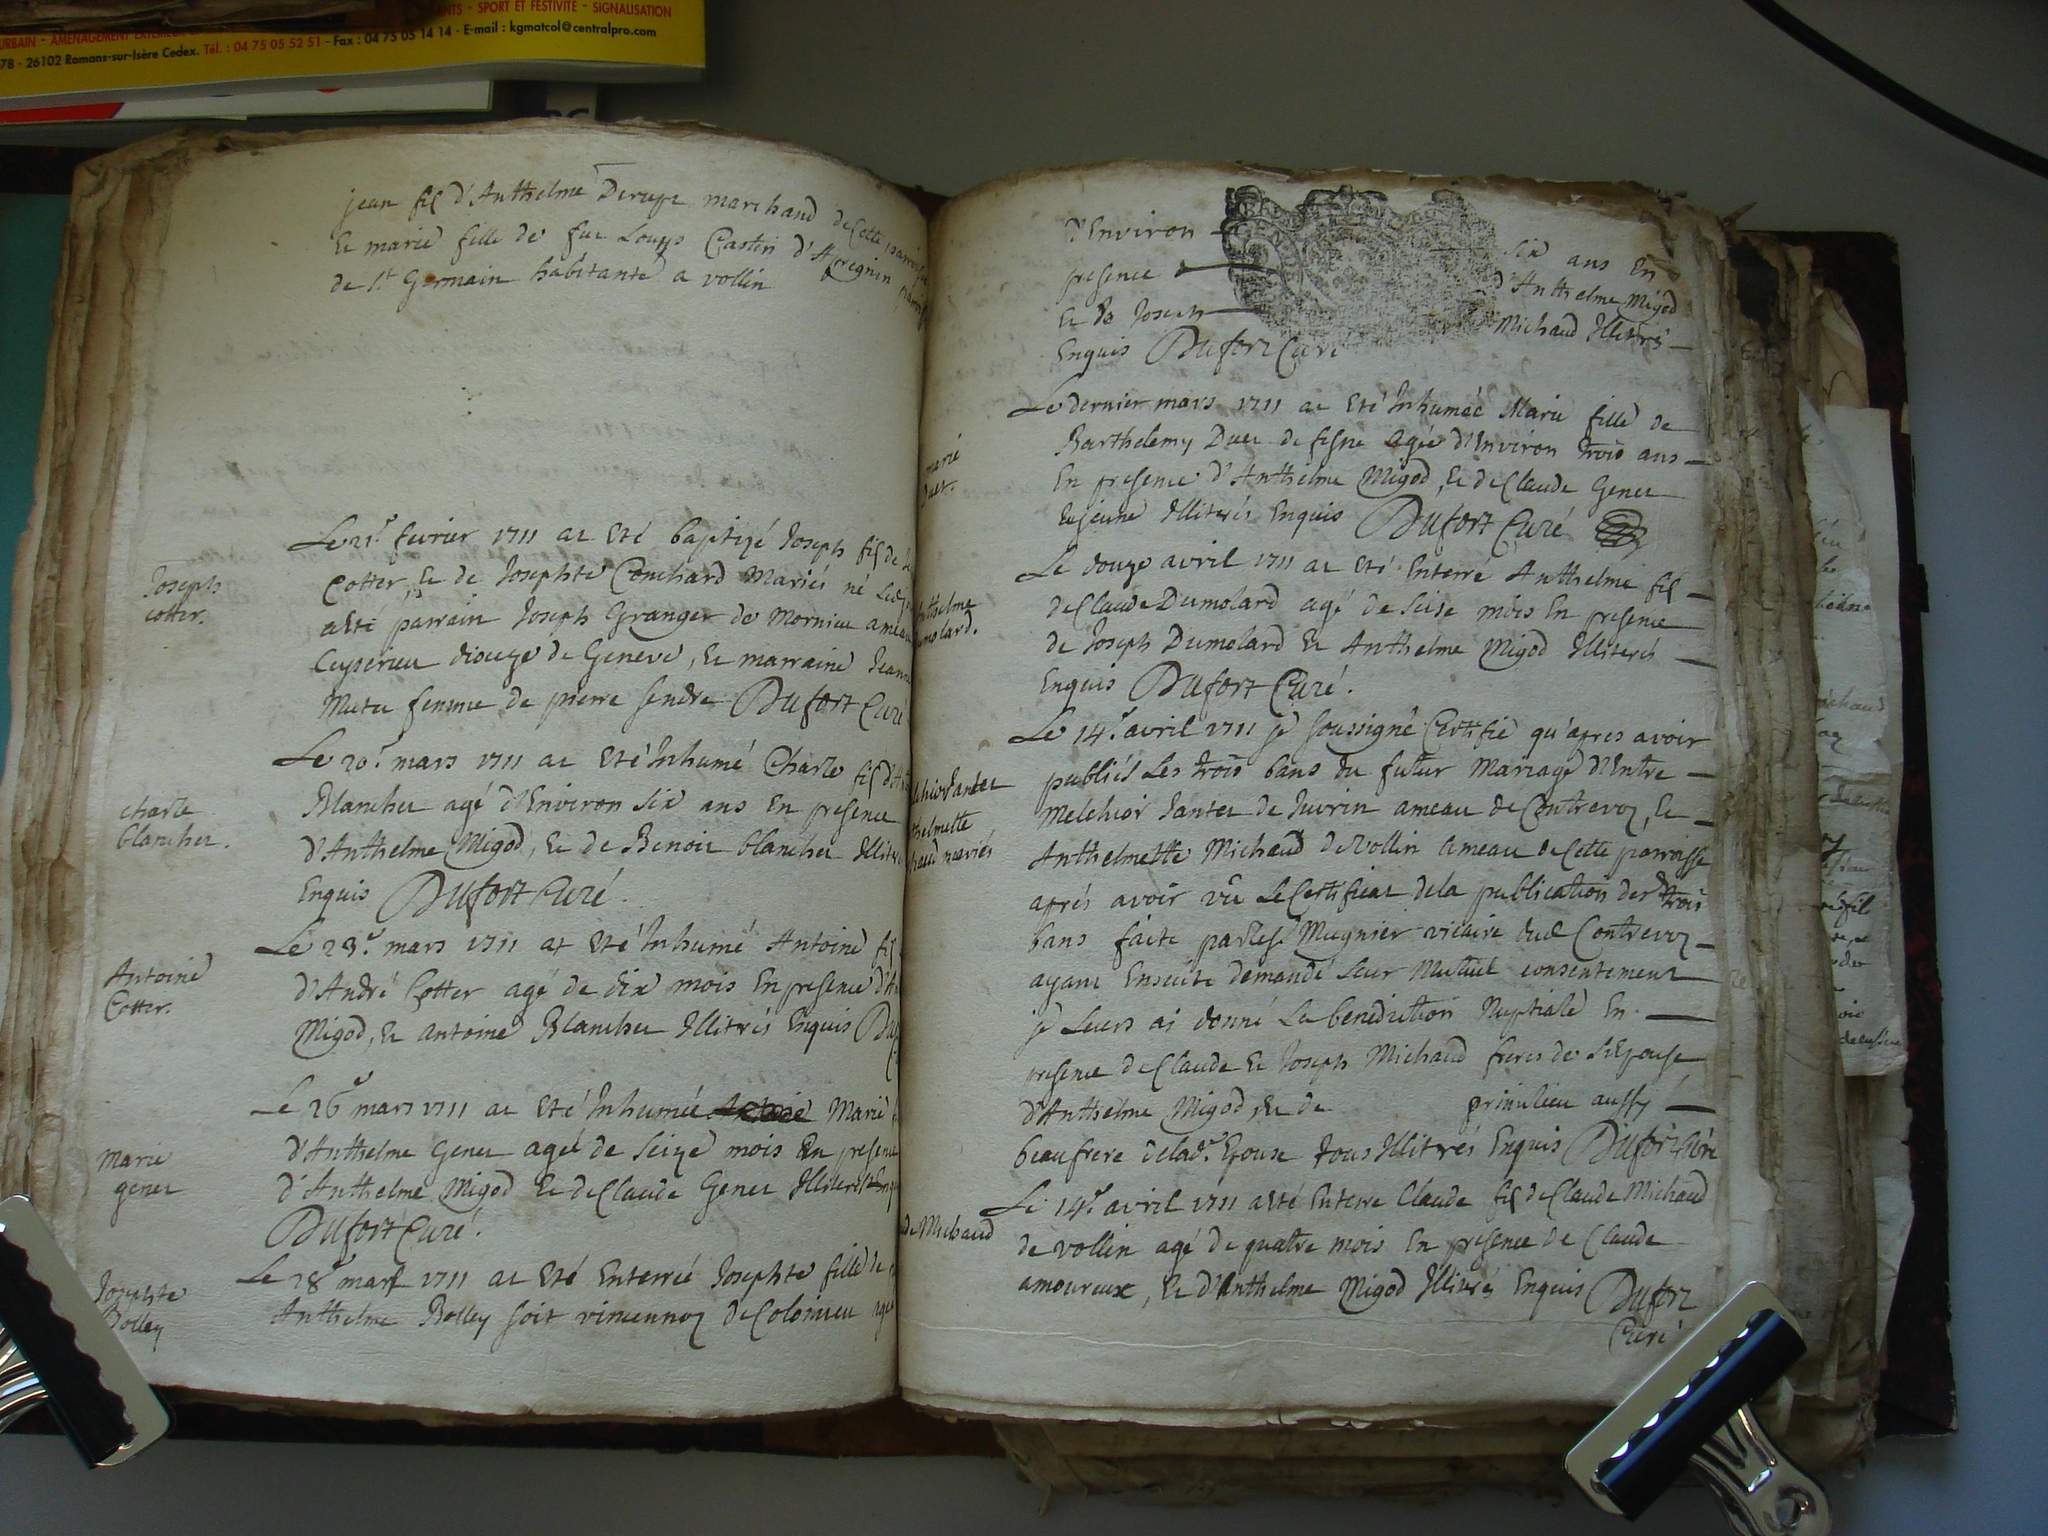 ANTS - SPORT ET FESTIVITÉ - SIGNALISATION
URBAIN - AMÉNAGEMENT
78 - 26102 Romans-sur-Isère Cedex. Tél. : 04 75 05 52 51 - Fax : 04 75 05 14 14 - E-mail : kgmatcol@centralpro.com
jean fils d'Anthelme marchand de Cette
Et marie fille de feu Louys Castin d'Apregnin
de St Germain habitante a vollin
Joseph
cotter.
Le 21e fevrier 1711 at Eté baptizé Joseph fils de
Cotter, Et de Josephte Conchard Mariés né
a Eté parrain Joseph Granger de Mornieu ameau
Ceyserieu dioceze de Geneve, Et marraine Jeanne
femme de pierre Sendre Dufort Curé
charle
blancher.
Le 20e mars 1711 at Eté Inhumé Charle fils
Blanchet agé d'Environ six ans En presence
d'Anthelme Migod, Et de Benoit blanchet
Enquis Dufort Curé.
Antoine
Cotter.
Le 23e mars 1711 at Eté Inhumé Antoine fils
d'André Cotter agé de dix mois En presence
Migod, Et antoine Blanchet Illitrés Enquis
marie
genet
Le 26e mars 1711 at Eté Inhumée Marie
d'Anthelme Genet agée de seize mois En presence
d'Anthelme Migod Et de Claude Genet Illiterés
Dufort Curé.
Josephte
Bolley
Le 28e mars 1711 at Eté Enterrée Josephte fille de
Anthelme Bolley soit vincennoz de Colomieu agée
d'Environ six ans En
presence d'Anthelme Migod
Et de Joseph Michaud Illitrés
Enquis Dufort Curé
marie
duet.
Le dernier mars 1711 at Eté Inhumée Marie fille de
Barthelemy Duet de agée d'Environ trois ans
En presence d'Anthelme Migod, Et de Claude Genet
Lejeune Illiterés Enquis Dufort Curé
Anthelme
dumolard.
Le douze avril 1711 at Eté Enterré Anthelme fils
de Claude Dumolard agé de seise mois En presence
de Joseph Dumolard Et Anthelme Migod Illiterés
Enquis Dufort Curé.
Melchior Jantet
Anthelmette
Michaud mariés
Le 14e avril 1711 je soussigné Certifie qu'apres avoir
publiés Les trois bans du futur Mariage d'Entre
Melchior Jantet de Juvrin ameau de Contrevoz, Et
Anthelmette Michaud de Vollin ameau de Cette parroisse
aprés avoir vû Le Certificat de la publication des trois
bans faite par Mugnier vicaire Contrevoz
ayant Ensuite demandé Leur Mutuel consentement
je Leurs ai donné La benediction Nuptiale En
presence de Claude Et Joseph Michaud freres de L'Epouse
d'Anthelme Migod, Et de primilieu aussy
beaufrere de lade. Epouse tous Illitrés Enquis Dufort Curé
de Michaud
Le 14e avril 1711 a Eté Enterre Claude fils de Claude Michaud
de vollin agé de quatre mois En presence de Claude
amoureux, Et d'Anthelme Migod Illitrés Enquis Dufort
Curé